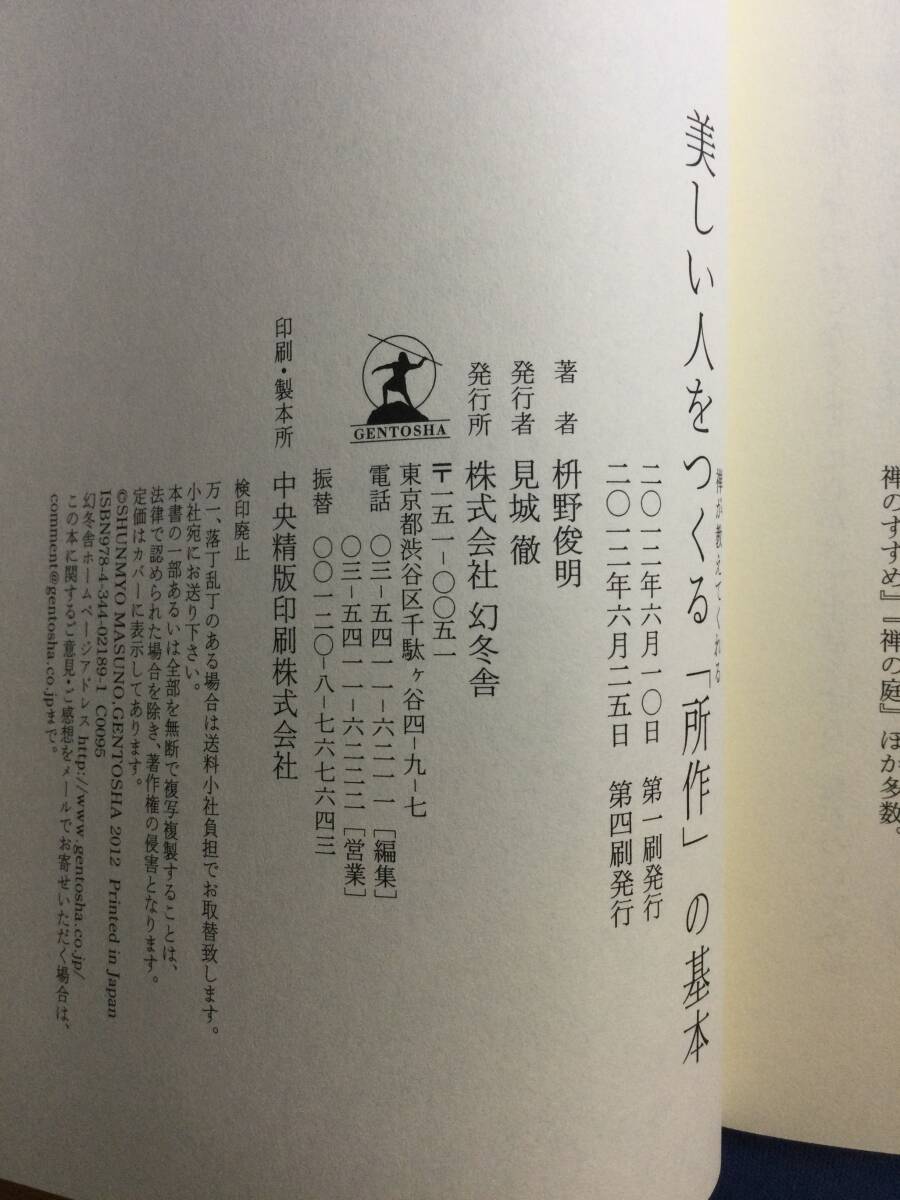 禅のすすめ』『禅の庭』ほか多数。
禅が教えてくれる
美しい人をつくる「所作」の基本
二〇一二年六月一〇日　第一刷発行
二〇一二年六月二五日　第四刷発行
著　者　枡野俊明
発行者　見城 徹
発行所　株式会社 幻冬舎
〒一五一-〇〇五一
東京都渋谷区千駄ヶ谷四-九-七
電話　〇三-五四一一-六二一一［編集］
〇三-五四一一-六二二二［営業］
振替　〇〇一二〇-八-七六七六四三
GENTOSHA
印刷・製本所　中央精版印刷株式会社
検印廃止
万一、落丁乱丁のある場合は送料小社負担でお取替致します。
小社宛にお送り下さい。
本書の一部あるいは全部を無断で複写複製することは、
法律で認められた場合を除き、著作権の侵害となります。
定価はカバーに表示してあります。
©SHUNMYO MASUNO,GENTOSHA 2012 Printed in Japan
ISBN978-4-344-02189-1 C0095
幻冬舎ホームページアドレス http://www.gentosha.co.jp/
この本に関するご意見・ご感想をメールでお寄せいただく場合は、
comment@gentosha.co.jpまで。